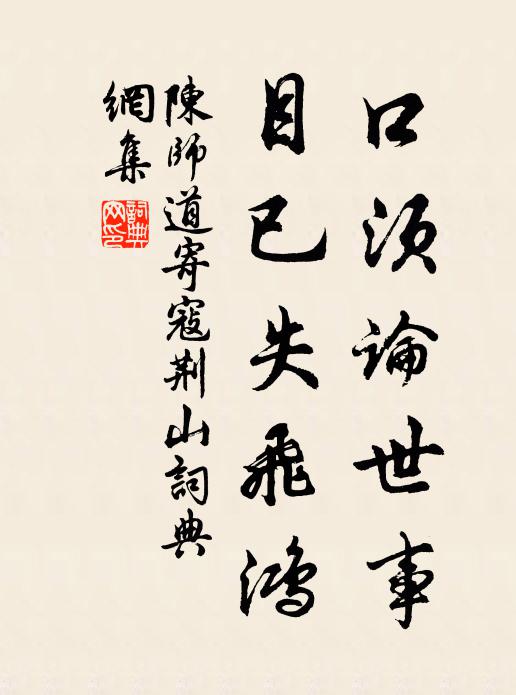 口须論世事
目已失飛鴻
陳師道寄寇荆山詞典
網集
詞典网印